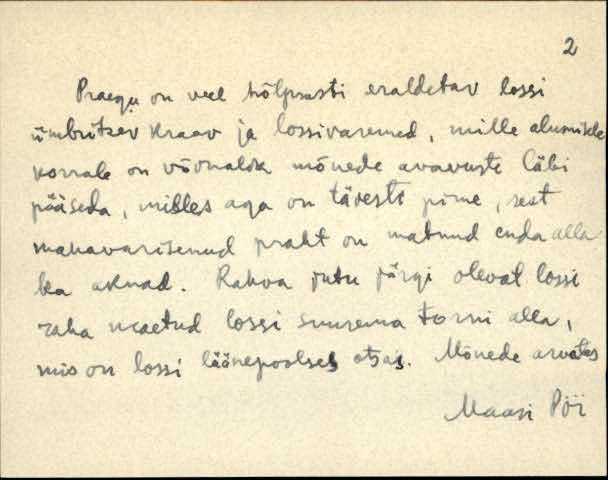 2
Praegu on veel hõlpsasti eraldetav lossi
ümbritsev kraav ja lossivaremed, mille alumisele
korrale on võimalik mõnede avavuste läbi
pääseda, milles aga on täiesti pime, sest
mahavarisenud praht on matnud enda alla
ka aknad. Rahva jutu järgi olevat lossi
raha maetud lossi suurema torni alla,
mis on lossi läänepoolses otsas. Mõnede arvates
Maasi Pöi